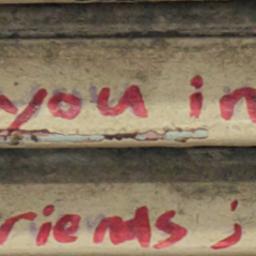 you in
riends ;